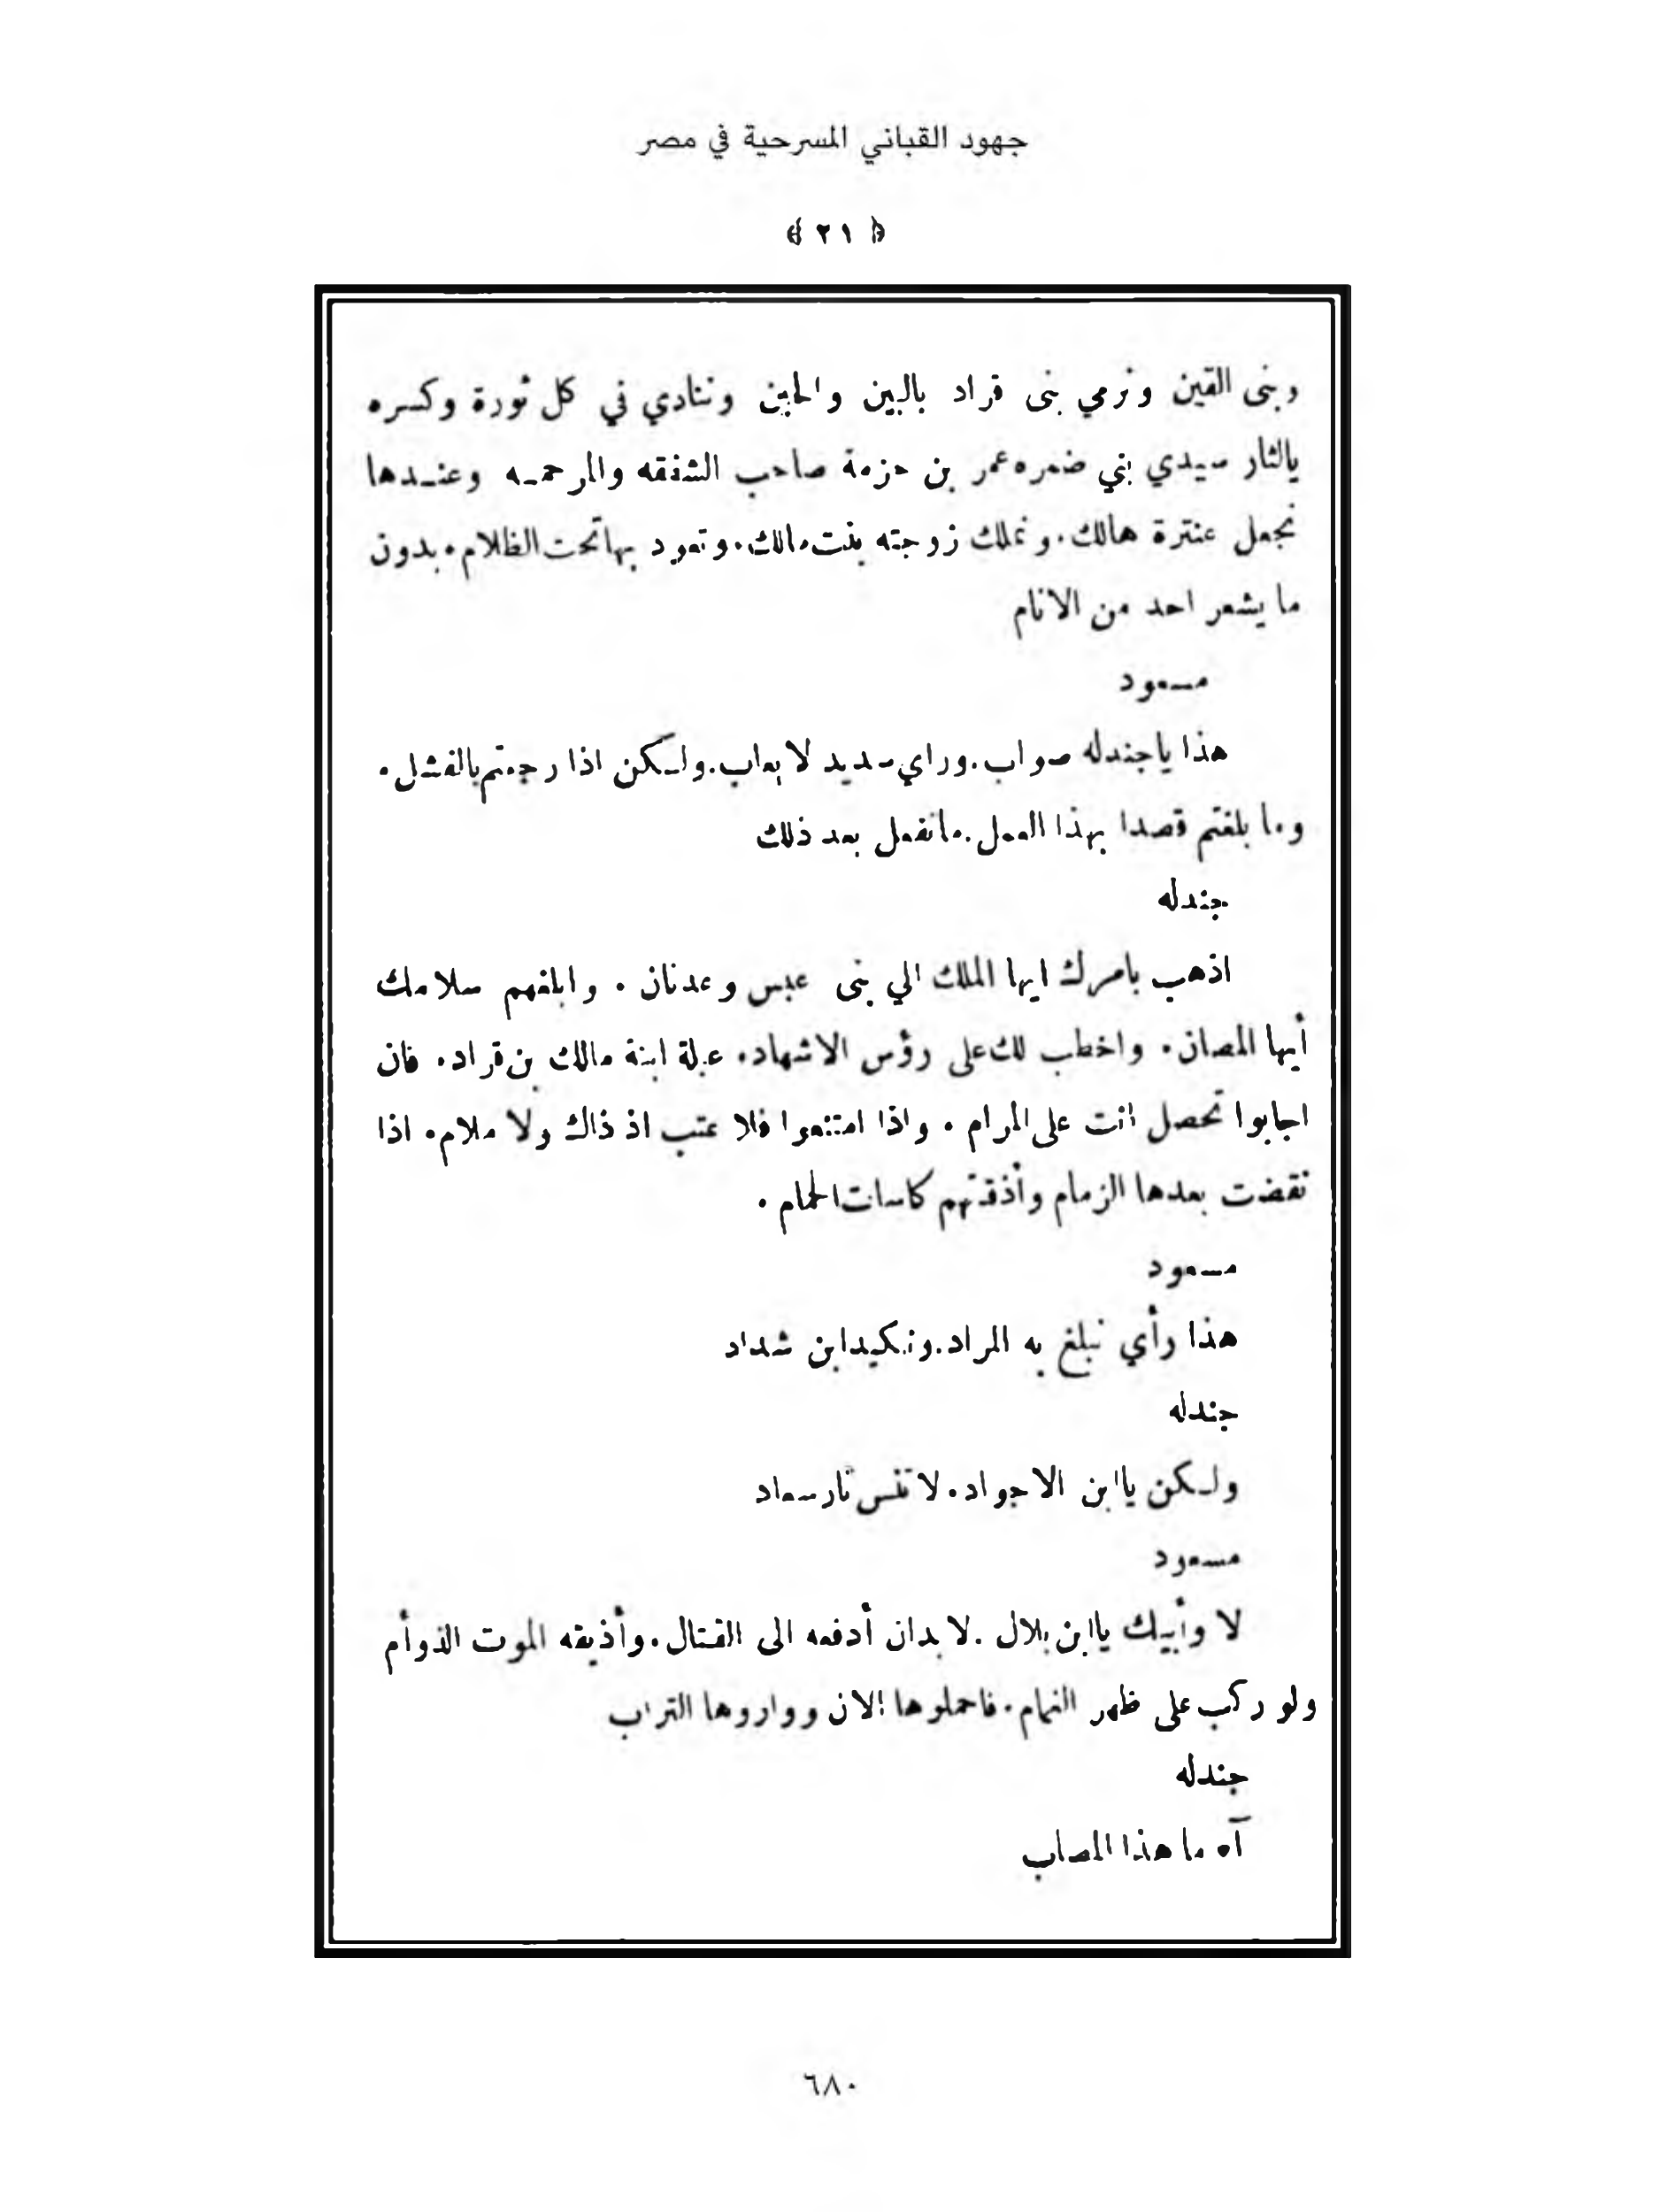 جهود القباني المسرحية في مصر
﴿ ٢١ ﴾
وبنى القين ونرمي بنى قراد بالبين والحين وننادي في كل ثورة وكسره
يالثار سيدي بني ضمره عمر بن حزمة صاحب الشفقه والمرحمه وعندها
نجعل عنترة هالك. ونملك زوجته بنت مالك. ونعود بها تحت الظلام. بدون
ما يشعر احد من الانام
مسعود
هذا ياجندله صواب. وراي سديد لا يعاب. ولكن اذا رجعتم بالفشل.
وما بلغتم قصدا بهذا العمل. ما نفعل بعد ذلك
جندله
اذهب بامرك ايها الملك الي بنى عبس وعدنان. وابلغهم سلامك
أيها المصان. واخطب لك على رؤس الاشهاد. عبلة ابنة مالك بن قراد. فان
اجابوا تحصل انت على المرام. واذا امتنعوا فلا عتب اذ ذاك ولا ملام. اذا
نقضت بعدها الزمام وأذقتهم كاسات الحمام.
مسعود
هذا رأي نبلغ به المراد. ونكيد ابن شداد
جندله
ولكن ياابن الاجواد. لا تنس ثار سعاد
مسعود
لا وأبيك ياابن بلال. لا بد ان أدفعه الى القتال. وأذيقه الموت الذوأم
ولو ركب على ظهر الغمام. فاحملوها الان وواروها التراب
جندله
آه ما هذا المصاب
٦٨٠